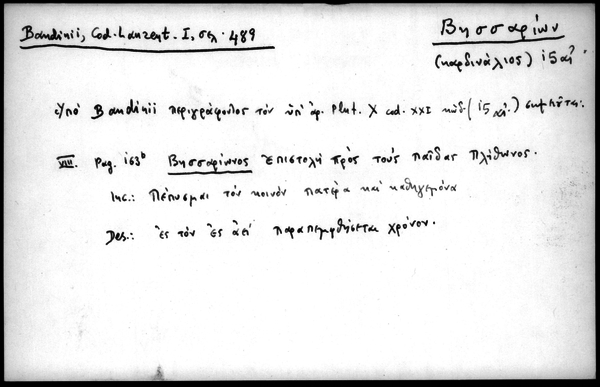 Bandinii, Cod. Laurent. I, σελ. 489
Βησσαρίων
(καρδινάλιος) ις αἰ.
Ὑπὸ Bandinii περιγράφοντος τὸν ὑπ' ἀρ. Plut. X cod. XXI κώδ. (ις αἰ.) σημειοῦται:
VIII. Pag. 163ᵇ Βησσαρίωνος ἐπιστολὴ πρὸς τοὺς παῖδας Πλήθωνος.
Inc.: Πέπυσμαι τὸν κοινὸν πατέρα καὶ καθηγεμόνα
Des.: ἐς τὸν ἐς ἀεὶ παραπεμφθήσεται χρόνον.